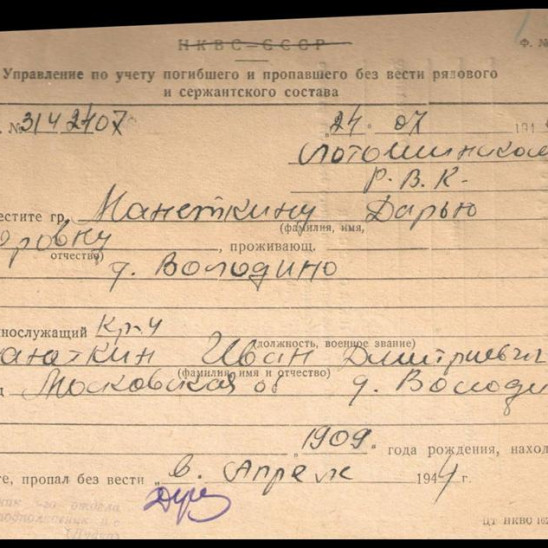 НКВС—СССР
Ф. №
Управление по учету погибшего и пропавшего без вести рядового
и сержантского состава
№ 3142407 „24“ 07 194
Лотошинском
Р.В.К.
естите гр. Манеткину Дарью
(фамилия, имя,
оровну, проживающ.
отчество)
д. Володино
ннослужащий Кр-ц
(должность, военное звание)
анаткин Иван Дмитриевич
(фамилия, имя и отчество)
Московская об д. Володи
1909 года рождения, наход
те, пропал без вести „в Апреле 1944 г.
ЦТ НКВО